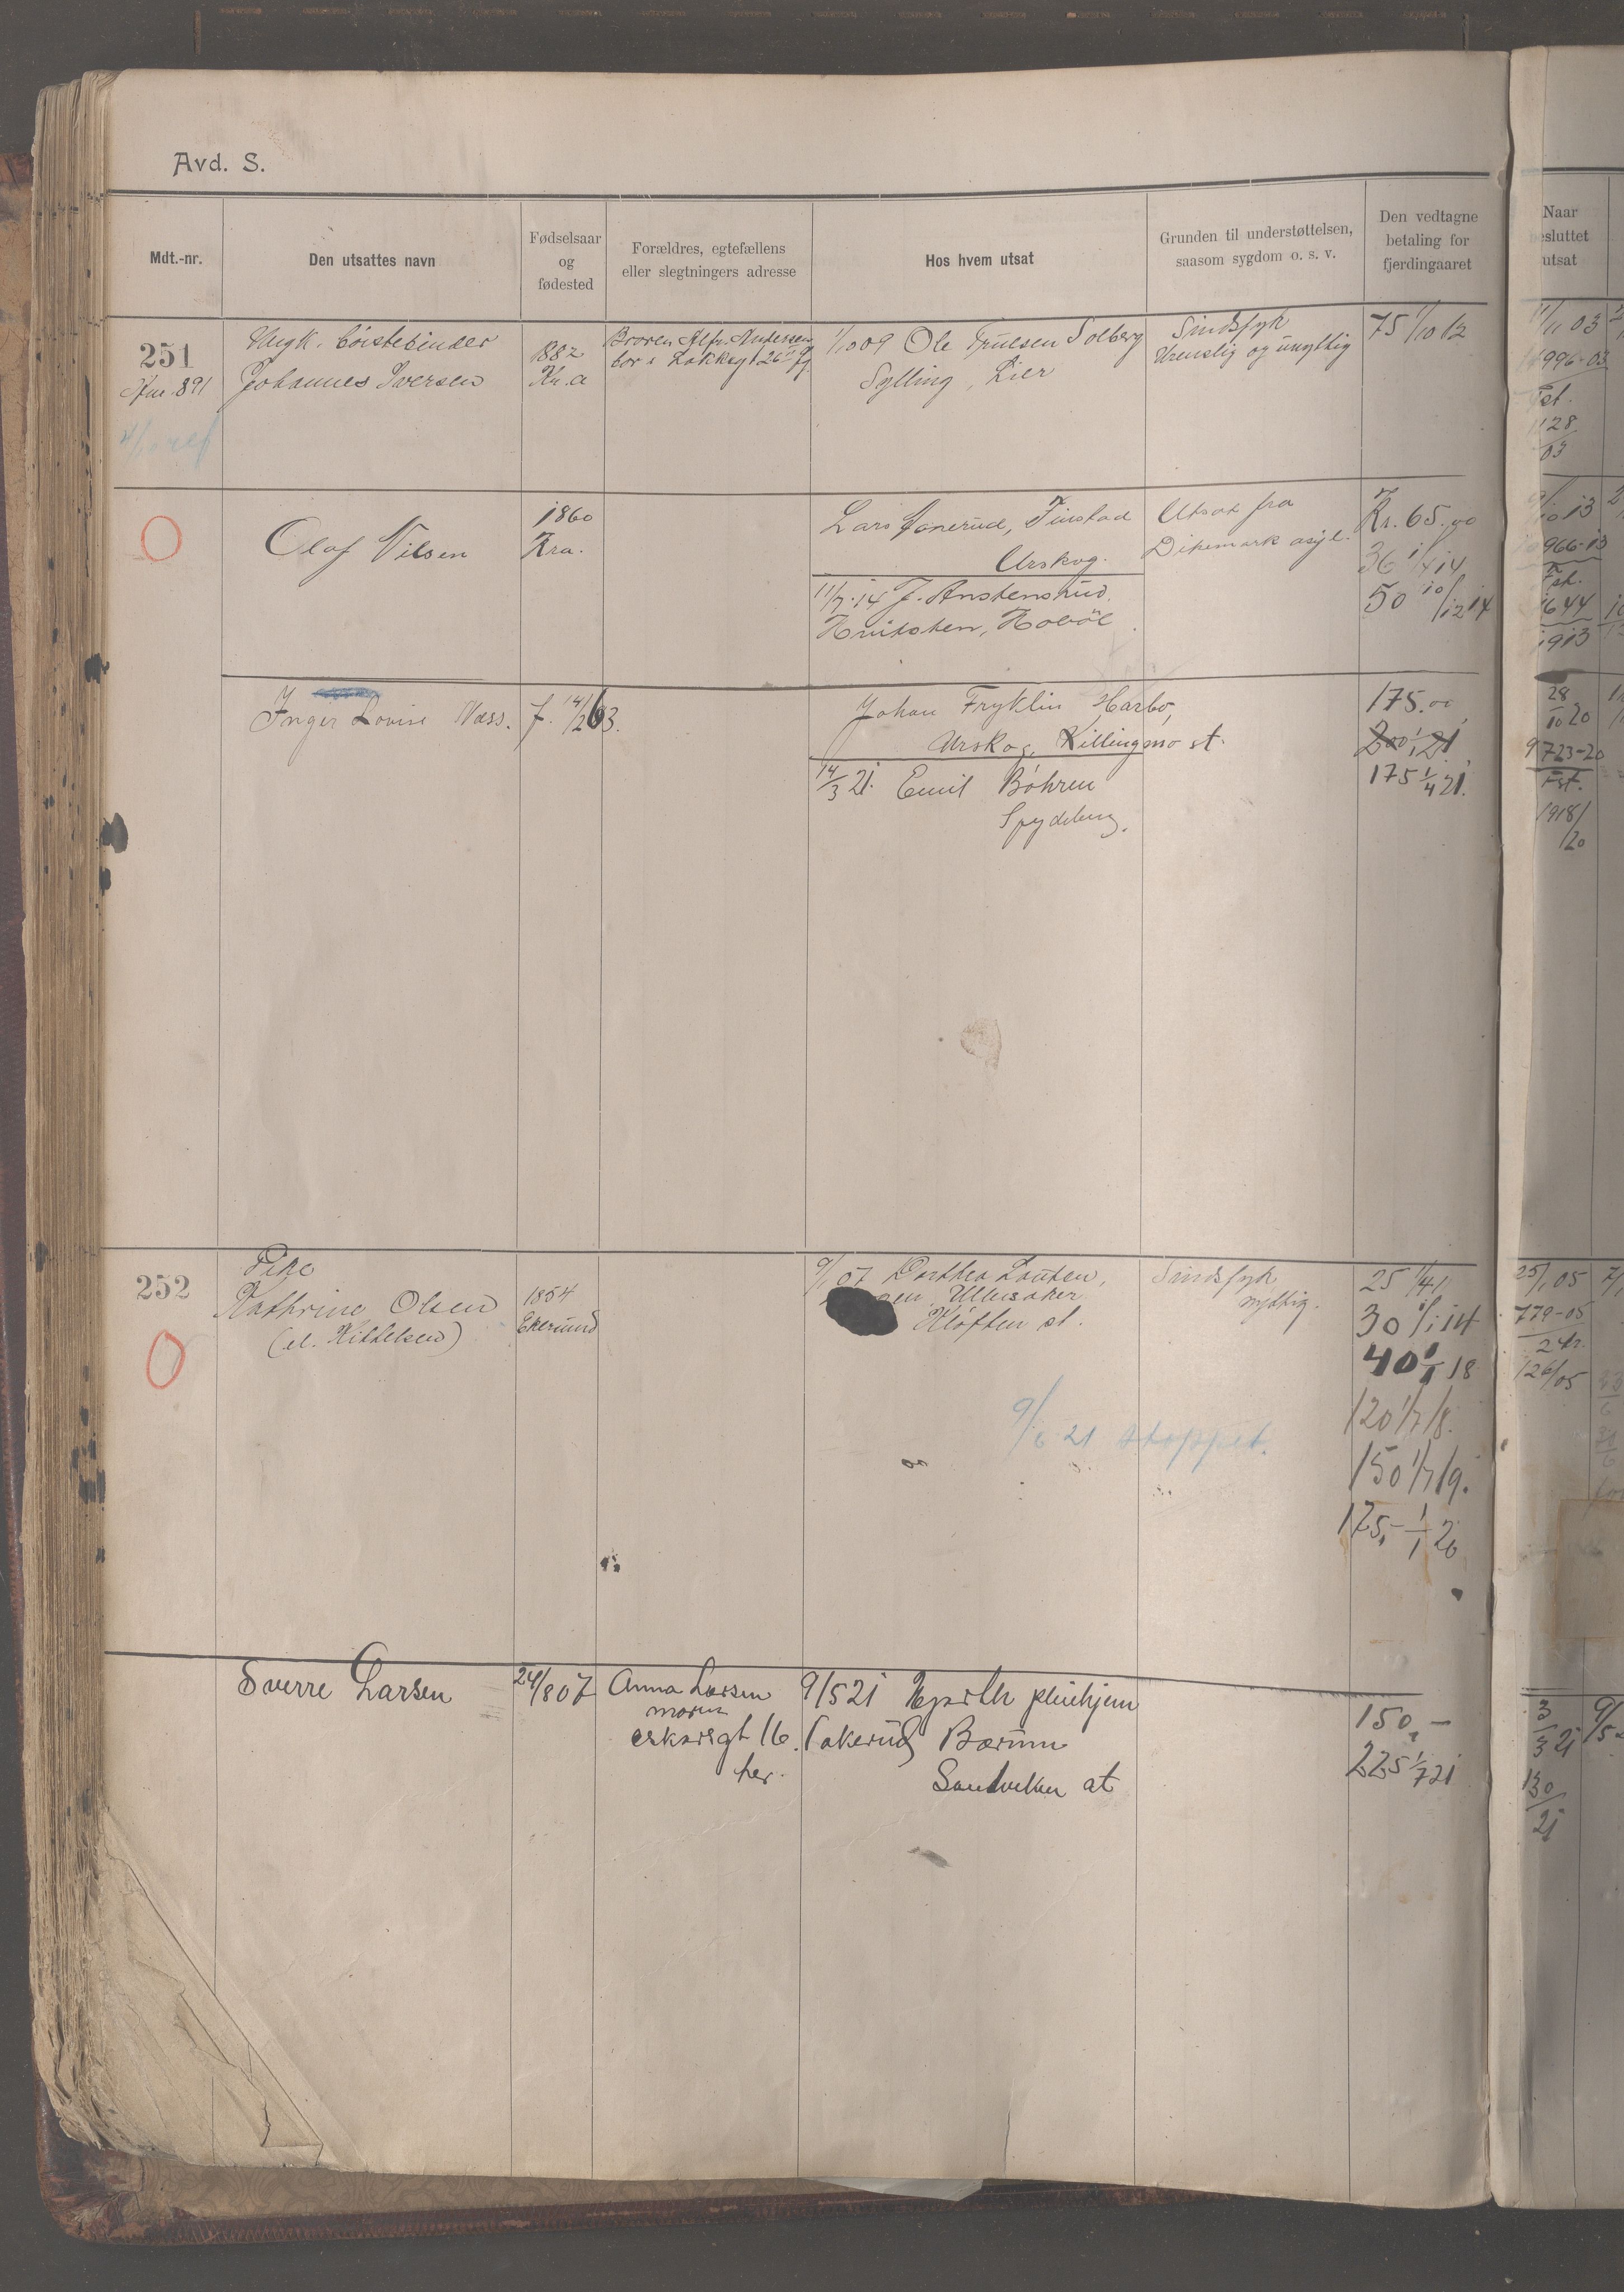 Avd. S.
Mdt.-nr.
Den utsattes navn
Fødselsaar
og
fødested
Forældres, egtefællens
eller slegtningers adresse
Hos hvem utsat
Grunden til understøttelsen,
saasom sygdom o. s. v.
Den vedtagne
betaling for
fjerdingaaret
Naar
esluttet
utsat
251
891
Ungk. børstebinder
Johannes Iversen
1882
Kr.a
Broren Alfr. Andersen
bor i Løkkegt 26
1/10 09 Ole Truesen Solberg
Sylling, Lier
Sindssyk
Urenslig og unyttig
75 1/10 12
11/11 03
996-03
Fst.
1128
03
Olaf Nilsen
1860
Kra.
Lars Finstad
Urskog.
11/7·14 J. Anstensrud.
Hvitsten, Hobøl
Utsat fra
Dikemark asyl.
Kr. 65.00
36 1/4 14
50 10/12 14
10 13
966-13
Fst.
1644
1913
Inger Lovise Næss.
f. 14/2 63.
Johan Fryklin Harbo,
Urskog, Killingmo st.
14/3 21. Emil Böhren
Spydeberg.
175.00
200 1/1 21
175 1/4 21.
28/10 20
9723-20
Fst.
1918/
20
252
Pike
Kathrine Olsen
(el. Kittelsen)
1854
Ekersund
9/1 07 Dorthea Lauten,
Ullensaker
Kløften st.
Sindssyk
nyttig.
25 1/4 1
30 1/1 14
40 1/1 18
120 1/7 18.
150 1/7 19.
175,- 1/1 20
9/6 21 stoppet.
25/1 05
779-05
2 kr.
126/05
Sverre Larsen
24/8 07
Anna Larsen
moren
16.
her.
9/5 21 pleiehjem
Bærum
Sandviken st
150,-
225 1/7 21
3/3 21
9/5
130
21